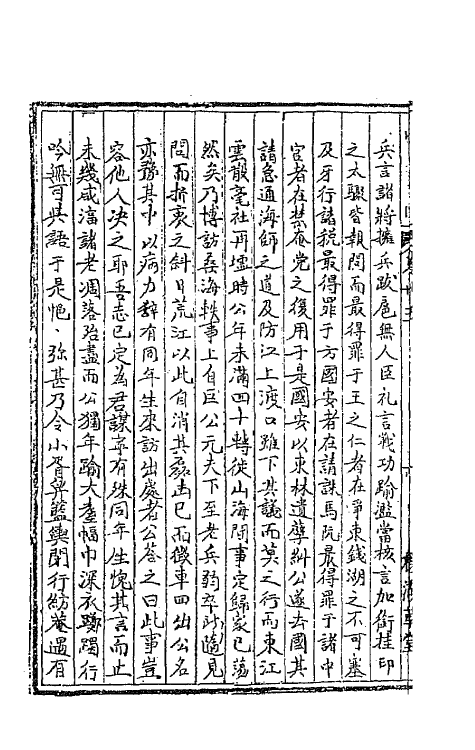 兵言諸將擁兵跋扈無人臣礼言戰功踰濫當核言加銜挂印
之太驟皆報聞而最得罪于王之仁者在爭東錢湖之不可塞
及牙行諸税最得罪于方國安者在請誅馬阮最得罪于諸中
官者在禁奄党之復用于是國安以東林遺孽糾公遂去國其
請急通海師之道及防江上渡口雖下其議而莫之行而東江
雲散亳社再墟時公年未滿四十轉徙山海間事定歸家已蕩
然矣乃博訪桑海軼事上自巨公元夫下至老兵弱卒所隨見
聞而折衷之斜日荒江以此自消其磊塊已而徵車四出公名
亦豫其中以病力辭有同年生來訪出處者公答之曰此事豈
容他人决之耶吾志已定為君謀亦有殊同年生愧其言而止
未幾咸淄諸老凋落殆盡而公獨年踰大耋幅巾深衣躑躅行
吟無可與語于是悒、弥甚乃令小胥舁籃輿閒行紡巷遇有